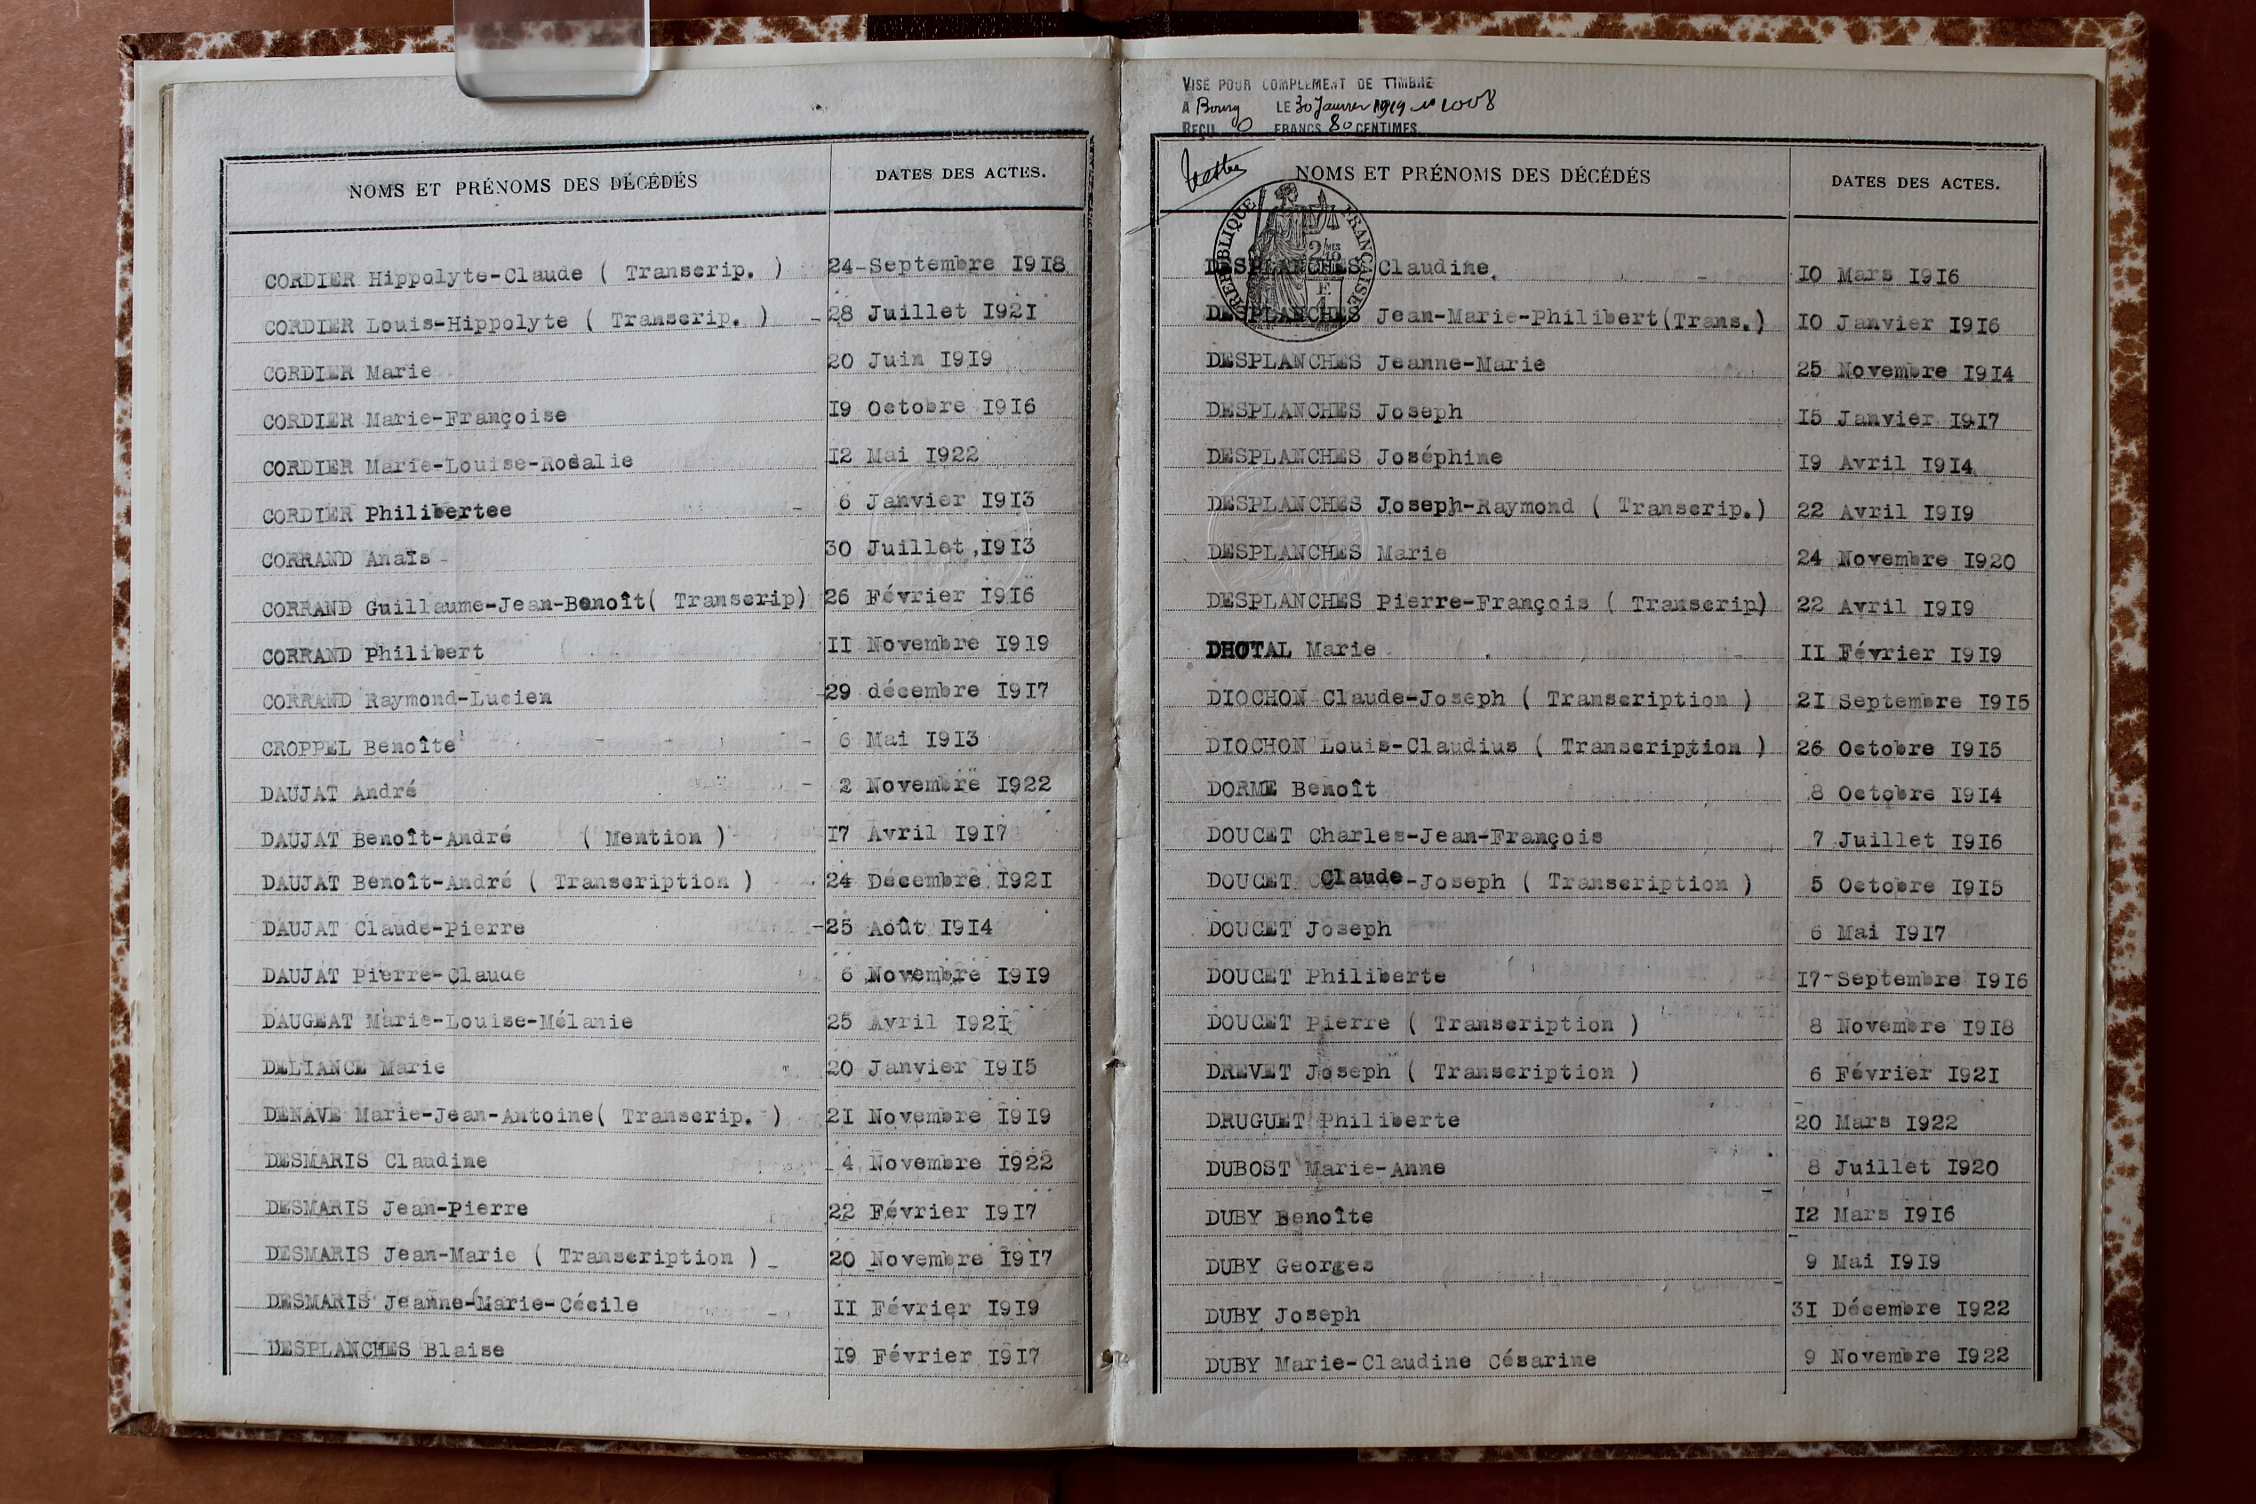 NOMS ET PRÉNOMS DES DÉCÉDÉS DATES DES ACTES.
CORDIER Hippolyte-Claude ( Transcrip. ) 24-Septembre 1918
CORDIER Louis-Hippolyte ( Transcrip. ) -28 Juillet 1921
CORDIER Marie 20 Juin 1919
CORDIER Marie-Françoise 19 Octobre 1916
CORDIER Marie-Louise-Rosalie 12 Mai 1922
CORDIER Philibertee 6 Janvier 1913
CORRAND Anaïs 30 Juillet 1913
CORRAND Guillaume-Jean-Benoît( Transcrip) 26 Février 1916
CORRAND Philibert 11 Novembre 1919
CORRAND Raymond-Lucien -29 décembre 1917
CROPPEL Benoîte 6 Mai 1913
DAUJAT André 2 Novembre 1922
DAUJAT Benoît-André ( Mention ) 17 Avril 1917
DAUJAT Benoît-André ( Transcription ) 24 Décembre 1921
DAUJAT Claude-Pierre -25 Août 1914
DAUJAT Pierre-Claude 6 Novembre 1919
DAUGEAT Marie-Louise-Mélanie 25 Avril 1921
DELIANCE Marie 20 Janvier 1915
DENAVE Marie-Jean-Antoine( Transcrip. ) 21 Novembre 1919
DESMARIS Claudine 4 Novembre 1922
DESMARIS Jean-Pierre 22 Février 1917
DESMARIS Jean-Marie ( Transcription ) 20 Novembre 1917
DESMARIS Jeanne-Marie-Cécile 11 Février 1919
DESPLANCHES Blaise 19 Février 1917
VISÉ POUR COMPLÉMENT DE TIMBRE
A Bourg LE 30 Janvier 1919 n° 1008
REÇU 0 FRANCS 80 CENTIMES
NOMS ET PRÉNOMS DES DÉCÉDÉS DATES DES ACTES.
RÉPUBLIQUE FRANÇAISE
DESPLANCHES Claudine. 10 Mars 1916
DESPLANCHES Jean-Marie-Philibert(Trans.) 10 Janvier 1916
DESPLANCHES Jeanne-Marie 25 Novembre 1914
DESPLANCHES Joseph 15 Janvier 1917
DESPLANCHES Joséphine 19 Avril 1914
DESPLANCHES Joseph-Raymond ( Transcrip.) 22 Avril 1919
DESPLANCHES Marie 24 Novembre 1920
DESPLANCHES Pierre-François ( Transcrip) 22 Avril 1919
DHOTAL Marie 11 Février 1919
DIOCHON Claude-Joseph ( Transcription ) 21 Septembre 1915
DIOCHON Louis-Claudius ( Transcription ) 26 Octobre 1915
DORME Benoît 8 Octobre 1914
DOUCET Charles-Jean-François 7 Juillet 1916
DOUCET Claude-Joseph ( Transcription ) 5 Octobre 1915
DOUCET Joseph 6 Mai 1917
DOUCET Philiberte 17-Septembre 1916
DOUCET Pierre ( Transcription ) 8 Novembre 1918
DREVET Joseph ( Transcription ) 6 Février 1921
DRUGUET Philiberte 20 Mars 1922
DUBOST Marie-Anne 8 Juillet 1920
DUBY Benoîte 12 Mars 1916
DUBY Georges 9 Mai 1919
DUBY Joseph 31 Décembre 1922
DUBY Marie-Claudine Césarine 9 Novembre 1922